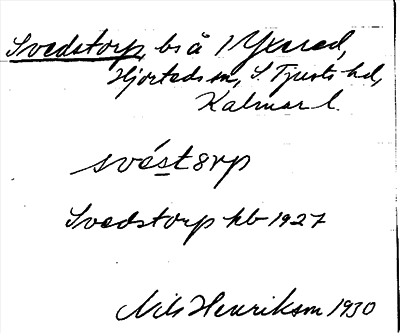 Svedstorp, bs å 1 Yxered,
Hjorteds sn, S. Tjusts hd,
Kalmar l.
svéstɐrp
Svedstorp kb 1927
Nils Henrikson 1930